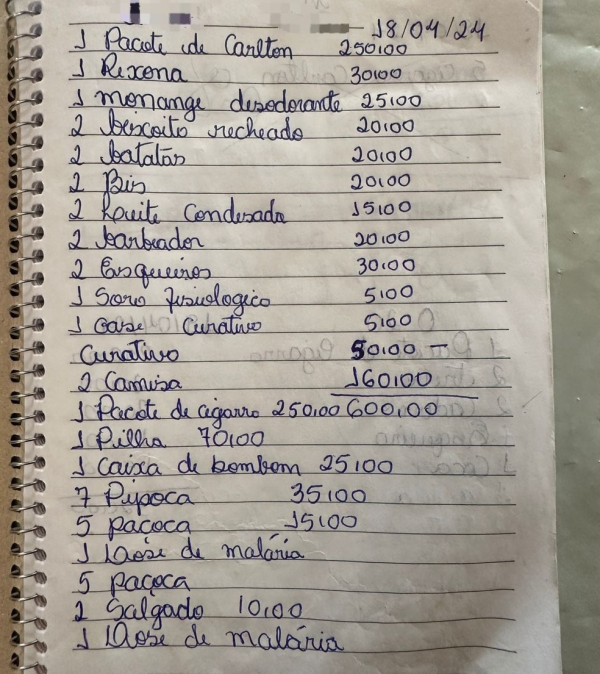 18/04/24
1 Pacote de Carlton 250,00
1 Rexona 30,00
1 monange desodorante 25,00
2 biscoito recheado 20,00
2 batatas 20,00
2 Bis 20,00
2 Leuite Condesada 15,00
2 barbeador 20,00
2 Esqueiros 30,00
1 Soro fusiologico 5,00
1 Gase Curativo 5,00
Curativo 50,00 —
2 Camisa 160,00
1 Pacote de cigarro 250,00 600,00
1 Pilha 70,00
1 caixa de bombom 25,00
7 Pipoca 35,00
5 paçoca 15,00
1 Dose de malária
5 paçoca
2 Salgado 10,00
1 Dose de malária